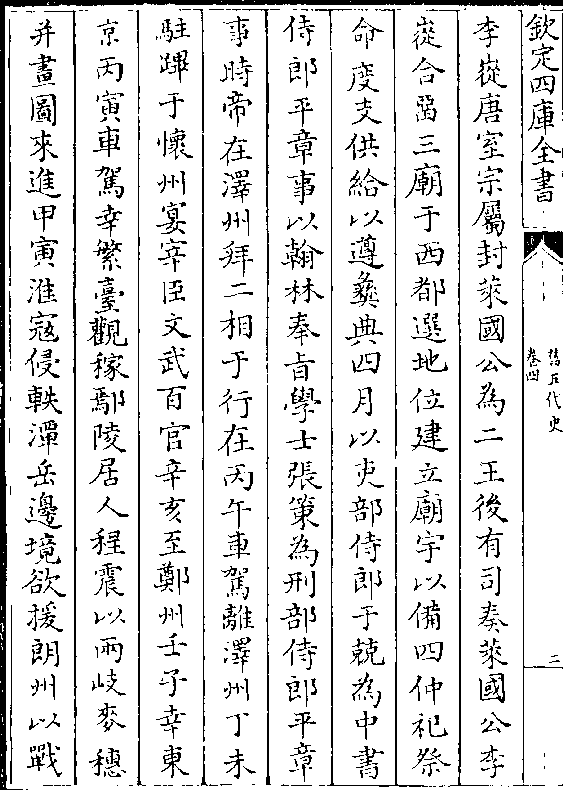 欽定四庫全書
舊五代史
卷四
二
李嵸唐室宗屬封萊國公為二王後有司奏萊國公李
嵸合留三廟于西都選地位建立廟宇以備四仲祀祭
命度支供給以遵彝典四月以吏部侍郎于兢為中書
侍郎平章事以翰林奉旨學士張策為刑部侍郎平章
事時帝在澤州拜二相于行在丙午車駕離澤州丁未
駐蹕于懷州宴宰臣文武百官辛亥至鄭州壬子幸東
京丙寅車駕幸繁臺觀稼鄢陵居人程震以兩岐麥穗
并畫圖來進甲寅淮寇侵軼潭岳邊境欲援朗州以戰